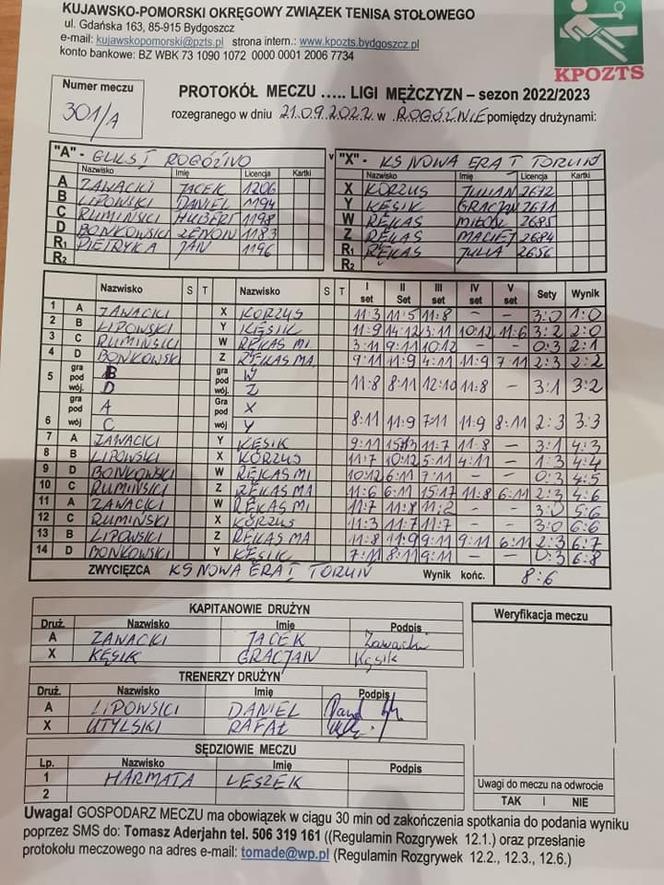 KUJAWSKO-POMORSKI OKRĘGOWY ZWIĄZEK TENISA STOŁOWEGO
ul. Gdańska 163, 85-915 Bydgoszcz
e-mail: kujawskopomorski@pzts.pl strona intern.: www.kpozts.bydgoszcz.pl
konto bankowe: BZ WBK 73 1090 1072 0000 0001 2006 7734
KPOZTS
Numer meczu
301/A
PROTOKÓŁ MECZU ..... LIGI MĘŻCZYZN – sezon 2022/2023
rozegranego w dniu 21.09.2022 w ROGÓŹNIE pomiędzy drużynami:
"A" - GLKS I ROGÓŹNO v "X" - KS NOWA ERA I TORUŃ
Nazwisko Imię Licencja Kartki Nazwisko Imię Licencja Kartki
A ZAWACKI JACEK 1206 X KORZUS JULIAN 2672
B LIPOWSKI DANIEL 1194 Y KĘSIK GRACJAN 2671
C RUMIŃSKI HUBERT 1198 W RĘKAS MIŁOSZ 2685
D BONKOWSKI ZENON 1183 Z RĘKAS MACIEJ 2684
R1 PIETRYKA JAN 1196 R1 RĘKAS JULIA 2656
R2 R2
Nazwisko S T Nazwisko S T I set II Set III set IV set V set Sety Wynik
1 A ZAWACKI X KORZUS 11:3 11:5 11:8 - - 3:0 1:0
2 B LIPOWSKI Y KĘSIK 11:9 14:12 3:11 10:12 11:6 3:2 2:0
3 C RUMIŃSKI W RĘKAS MI 3:11 9:11 10:12 - - 0:3 2:1
4 D BONKOWSKI Z RĘKAS MA 9:11 11:9 4:11 11:9 7:11 2:3 2:2
5 gra pod wój. B D gra pod wój Z 11:8 8:11 12:10 11:8 - 3:1 3:2
6 gra pod wój. A C Gra pod wój X Y 8:11 11:9 7:11 11:9 8:11 2:3 3:3
7 A ZAWACKI Y KĘSIK 9:11 11:7 11:8 - 3:1 4:3
8 B LIPOWSKI X KORZUS 11:7 10:12 5:11 4:11 - 1:3 4:4
9 D BONKOWSKI W RĘKAS MI 10:12 6:11 7:11 - - 0:3 4:5
10 C RUMIŃSKI Z RĘKAS MA 11:6 6:11 15:17 11:8 6:11 2:3 4:6
11 A ZAWACKI W RĘKAS MI 11:7 11:8 11:2 - 3:0 5:6
12 C RUMIŃSKI X KORZUS 11:3 11:7 11:7 - 3:0 6:6
13 B LIPOWSKI Z RĘKAS MA 11:8 11:9 9:11 9:11 6:11 2:3 6:7
14 D BONKOWSKI Y KĘSIK 7:11 8:11 9:11 - - 0:3 6:8
ZWYCIĘZCA KS NOWA ERA I TORUŃ Wynik końc. 8:6
KAPITANOWIE DRUŻYN
Druż. Nazwisko Imię Podpis
A ZAWACKI JACEK Zawacki
X KĘSIK GRACJAN Kęsik
TRENERZY DRUŻYN
Druż. Nazwisko Imię Podpis
A LIPOWSKI DANIEL
X UTYLSKI RAFAŁ
SĘDZIOWIE MECZU
Lp. Nazwisko Imię Podpis
1 HARMATA LESZEK
2
Weryfikacja meczu
Uwagi do meczu na odwrocie
TAK | NIE
Uwaga! GOSPODARZ MECZU ma obowiązek w ciągu 30 min od zakończenia spotkania do podania wyniku
poprzez SMS do: Tomasz Aderjahn tel. 506 319 161 ((Regulamin Rozgrywek 12.1.) oraz przesłanie
protokołu meczowego na adres e-mail: tomade@wp.pl (Regulamin Rozgrywek 12.2., 12.3., 12.6.)